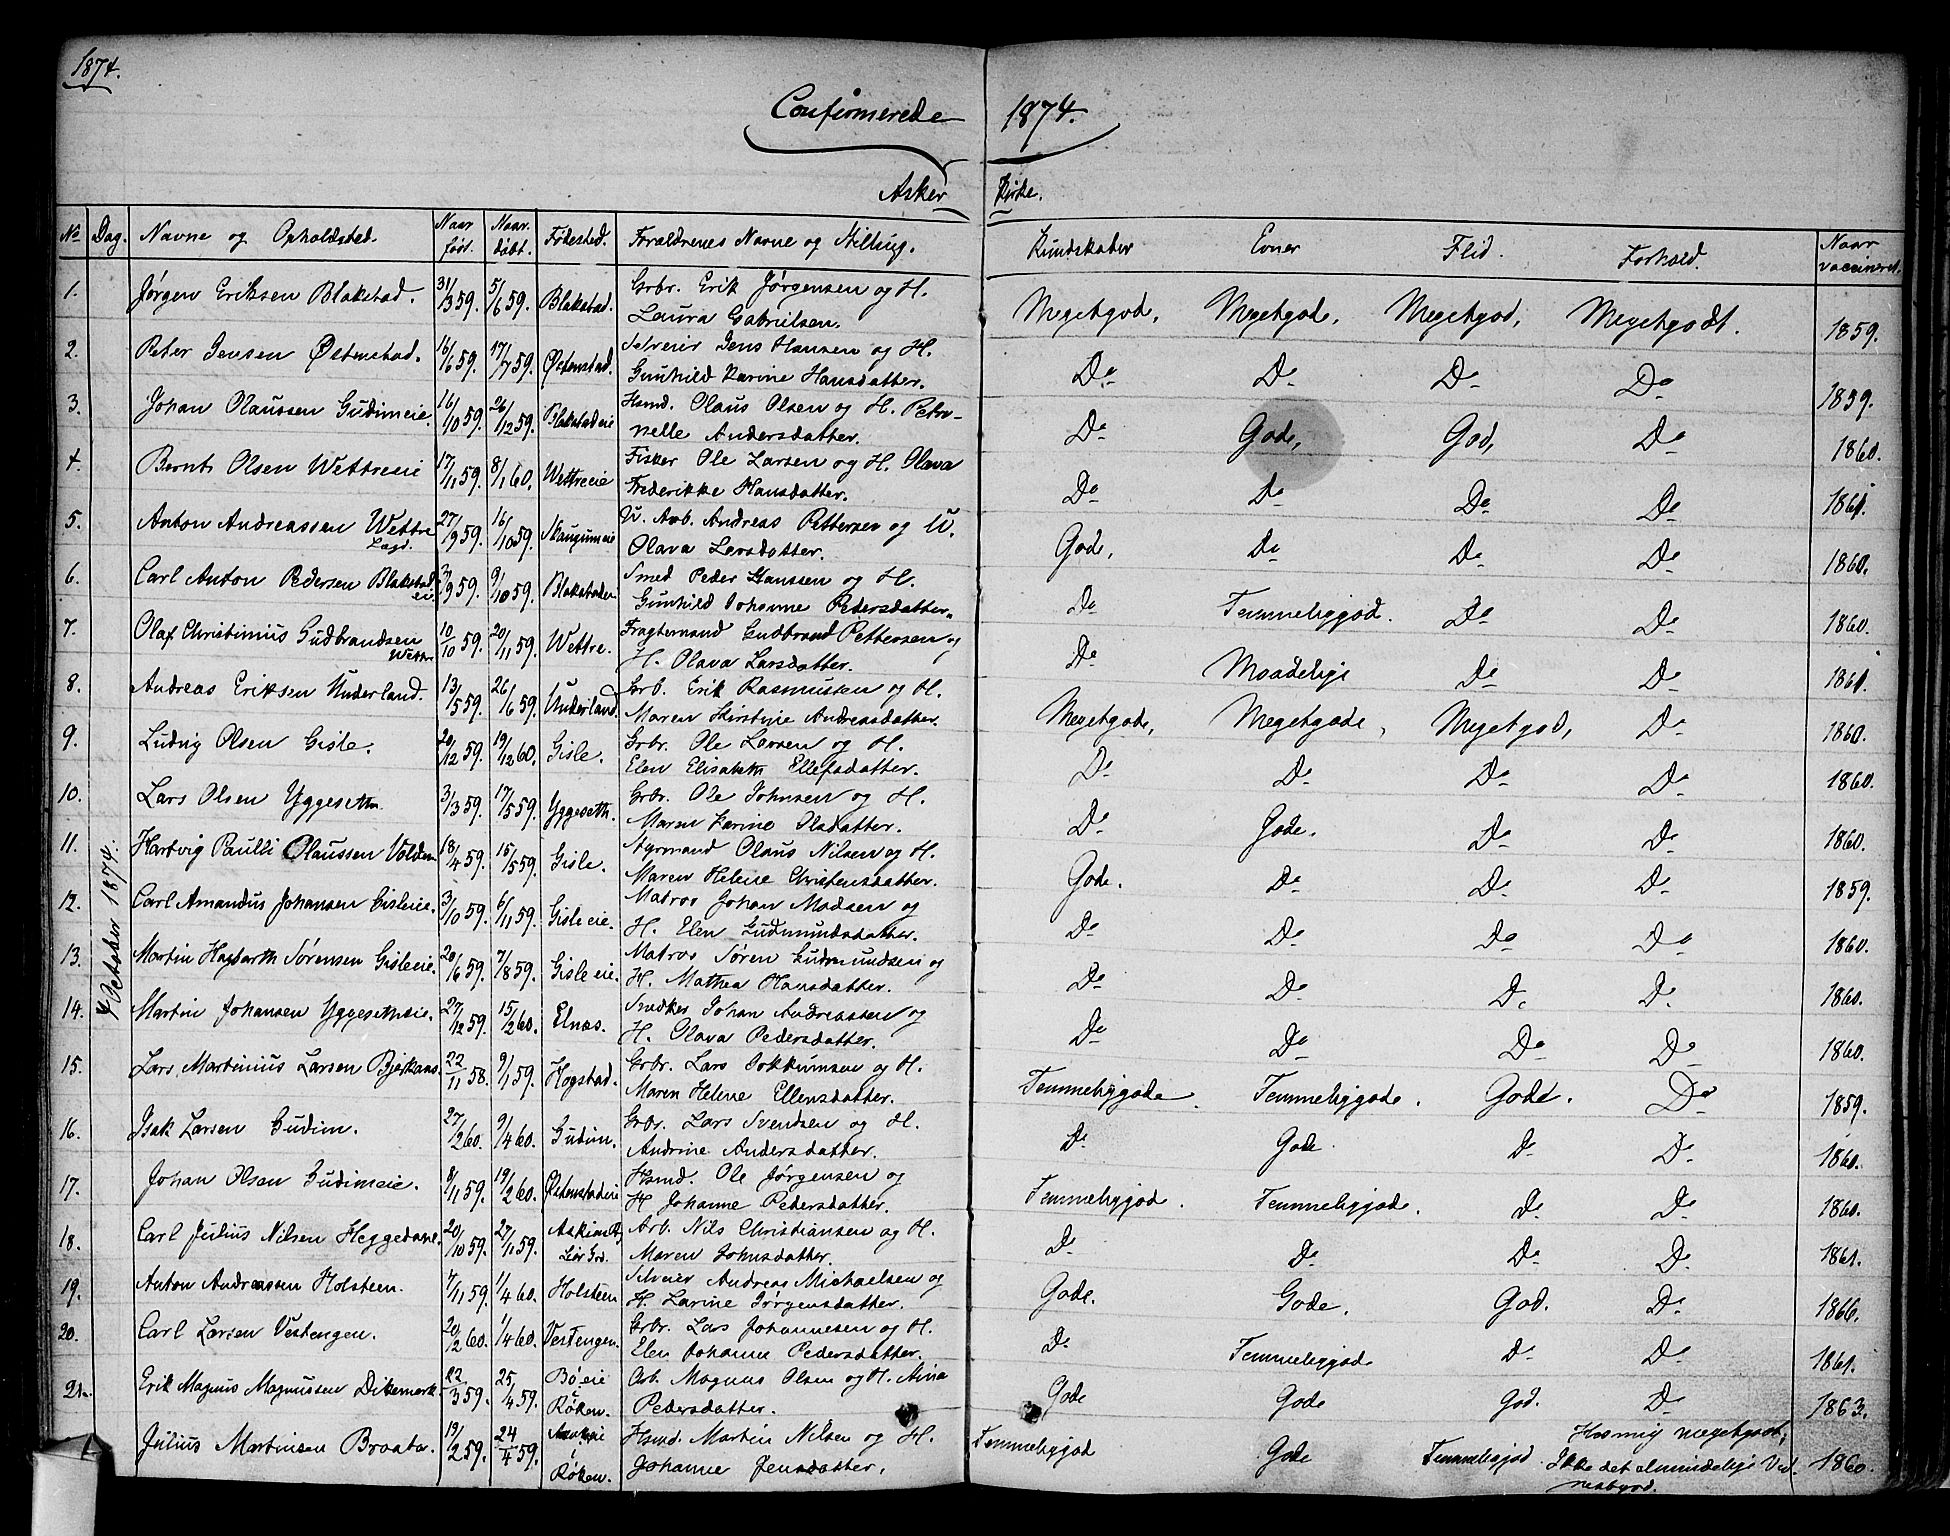 1874.
Confirmerede 1874.
Asker Kirke.
No Dag. Navne og Opholdsted. Naar født. Naar døbt. Fødested. Forældrenes Navne og Stilling. Kundskaber Evner Flid. Forhold. Naar vaccineret.
4 October 1874.
1. Jørgen Eriksen Blakstad. 31/3 59. 5/6 59. Blakstad. Grbr. Erik Jørgensen og H. Megetgod, Megetgode, Megetgod, Megetgodt. 1859.
Laura Gabrielsen.
2. Peter Jensen Østenstad. 16/6 59. 17/7 59. Østenstad. Selveier Jens Hansen og H. Do Do Do Do 1859.
Gunhild Karine Hansdatter.
3. Johan Olaussen Gudimeie. 16/10 59. 26/12 59. Blakstadeie Hsmd. Olaus Olsen og H. Petro- Do Gode, God, Do 1860.
nelle Andersdatter.
4. Bernt Olsen Wettreeie 17/11 59. 8/1 60. Wettreeie Fisker Ole Larsen og H. Olava Do Do Do Do 1861.
Frederikke Hansdatter.
5. Anton Andreassen Wettre 27/9 59. 16/10 59. Skaugumeie U. Arb. Andreas Pettersen og U. Gode, Do Do Do 1860.
Lagd. Olava Larsdatter.
6. Carl Anton Pedersen Blakstad 3/9 59. 9/10 59. Blakstadeie Smed Peder Hanssen og H. Do Temmeliggod. Do Do 1860.
eie. Gunhild Johanne Pedersdatter.
7. Olaf Christinius Gudbrandsen 10/10 59. 20/11 59. Wettre. Fragtemand Gudbrand Pettersen og Do Maadelige Do Do 1861.
Wettre H. Olava Larsdatter.
8. Andreas Eriksen Underland. 13/5 59. 26/6 59. Underland. Grb. Erik Rasmussen og H. Megetgode, Megetgode, Megetgod, Do 1860.
Maren Kirstine Andreasdatter.
9. Ludvig Olsen Gisle. 20/12 59. 19/12 60. Gisle. Grbr. Ole Larsen og H. Do Do Do Do 1860.
Elen Elisabeth Ellefsdatter.
10. Lars Olsen Yggeseth. 3/3 59. 17/5 59. Yggeseth. Grbr. Ole Johnsen og H. Do Gode. Do Do 1860.
Maren Karine Olsdatter.
11. Hartvig Paulli Olaussen Volden 18/4 59. 15/5 59. Gisle. Styrmand Olaus Nilsen og H. Gode. Do Do Do 1859.
Maren Helene Christensdatter.
12. Carl Amandus Johansen Gisleeie. 3/10 59. 6/11 59. Gisleeie. Matros Johan Madsen og Do Do Do Do 1860.
H. Elen Gudmundsdatter.
13. Martin Hagbarth Sørensen Gisleeie. 20/6 59. 7/8 59. Gisleeie. Matros Søren Gudmundsen og Do Do Do Do 1860.
H. Mathea Hansdatter.
14. Martin Johansen Yggesetheie. 27/12 59. 15/2 60. Elnæs. Snedker Johan Andreassen og Do Do Do Do 1860.
H. Olava Pedersdatter.
15. Lars Martinius Larsen Bjerkaas 22/11 58. 9/1 59. Hogstad. Grbr. Lars Jokkumsen og H. Temmeliggode. Temmeliggode. Gode. Do 1859.
Maren Helene Ellensdatter.
16. Isak Larsen Gudim. 27/2 60. 9/4 60. Gudim. Grbr. Lars Svendsen og H. Do Gode Do Do 1860.
Andrine Andersdatter.
17. Johan Olsen Gudimeie. 8/11 59. 19/2 60. Østenstadeie Hsmd. Ole Jørgensen og Temmeliggod. Temmeliggode. Do Do 1860.
H. Johanne Pedersdatter.
18. Carl Julius Nilsen Heggedame. 20/10 59. 27/11 59. Arb. Nils Christiansen og H. Do Do Do Do 1861.
Lier Maren Johnsdatter.
19. Anton Andreassen Holsteen. 7/11 59. 1/4 60. Holsteen Selveier Andreas Michaelsen og Gode. Gode. God. Do 1866.
H. Larine Jørgensdatter.
20. Carl Larsen Vestengen. 20/2 60. 1/4 60. Vestengen. Grbr. Lars Johannesen og H. Do Temmeliggode Do Do 1861.
Elen Johanne Pedersdatter.
21. Erik Magnus Magnussen Dikemark 22/3 59. 25/4 59. Bøeie Arb. Magnus Olsen og H. Gode Gode God. Do 1863.
Røken. Pedersdatter.
Julius Martinsen Braaten. 19/2 59. 24/4 59. Hsmd. Martin Nilsen og H. Temmeliggod Gode Temmeliggod. megetgodt, 1860.
Røken. Johanne Jensdatter. Ikke det almindelige Vid-
nesbyrd.